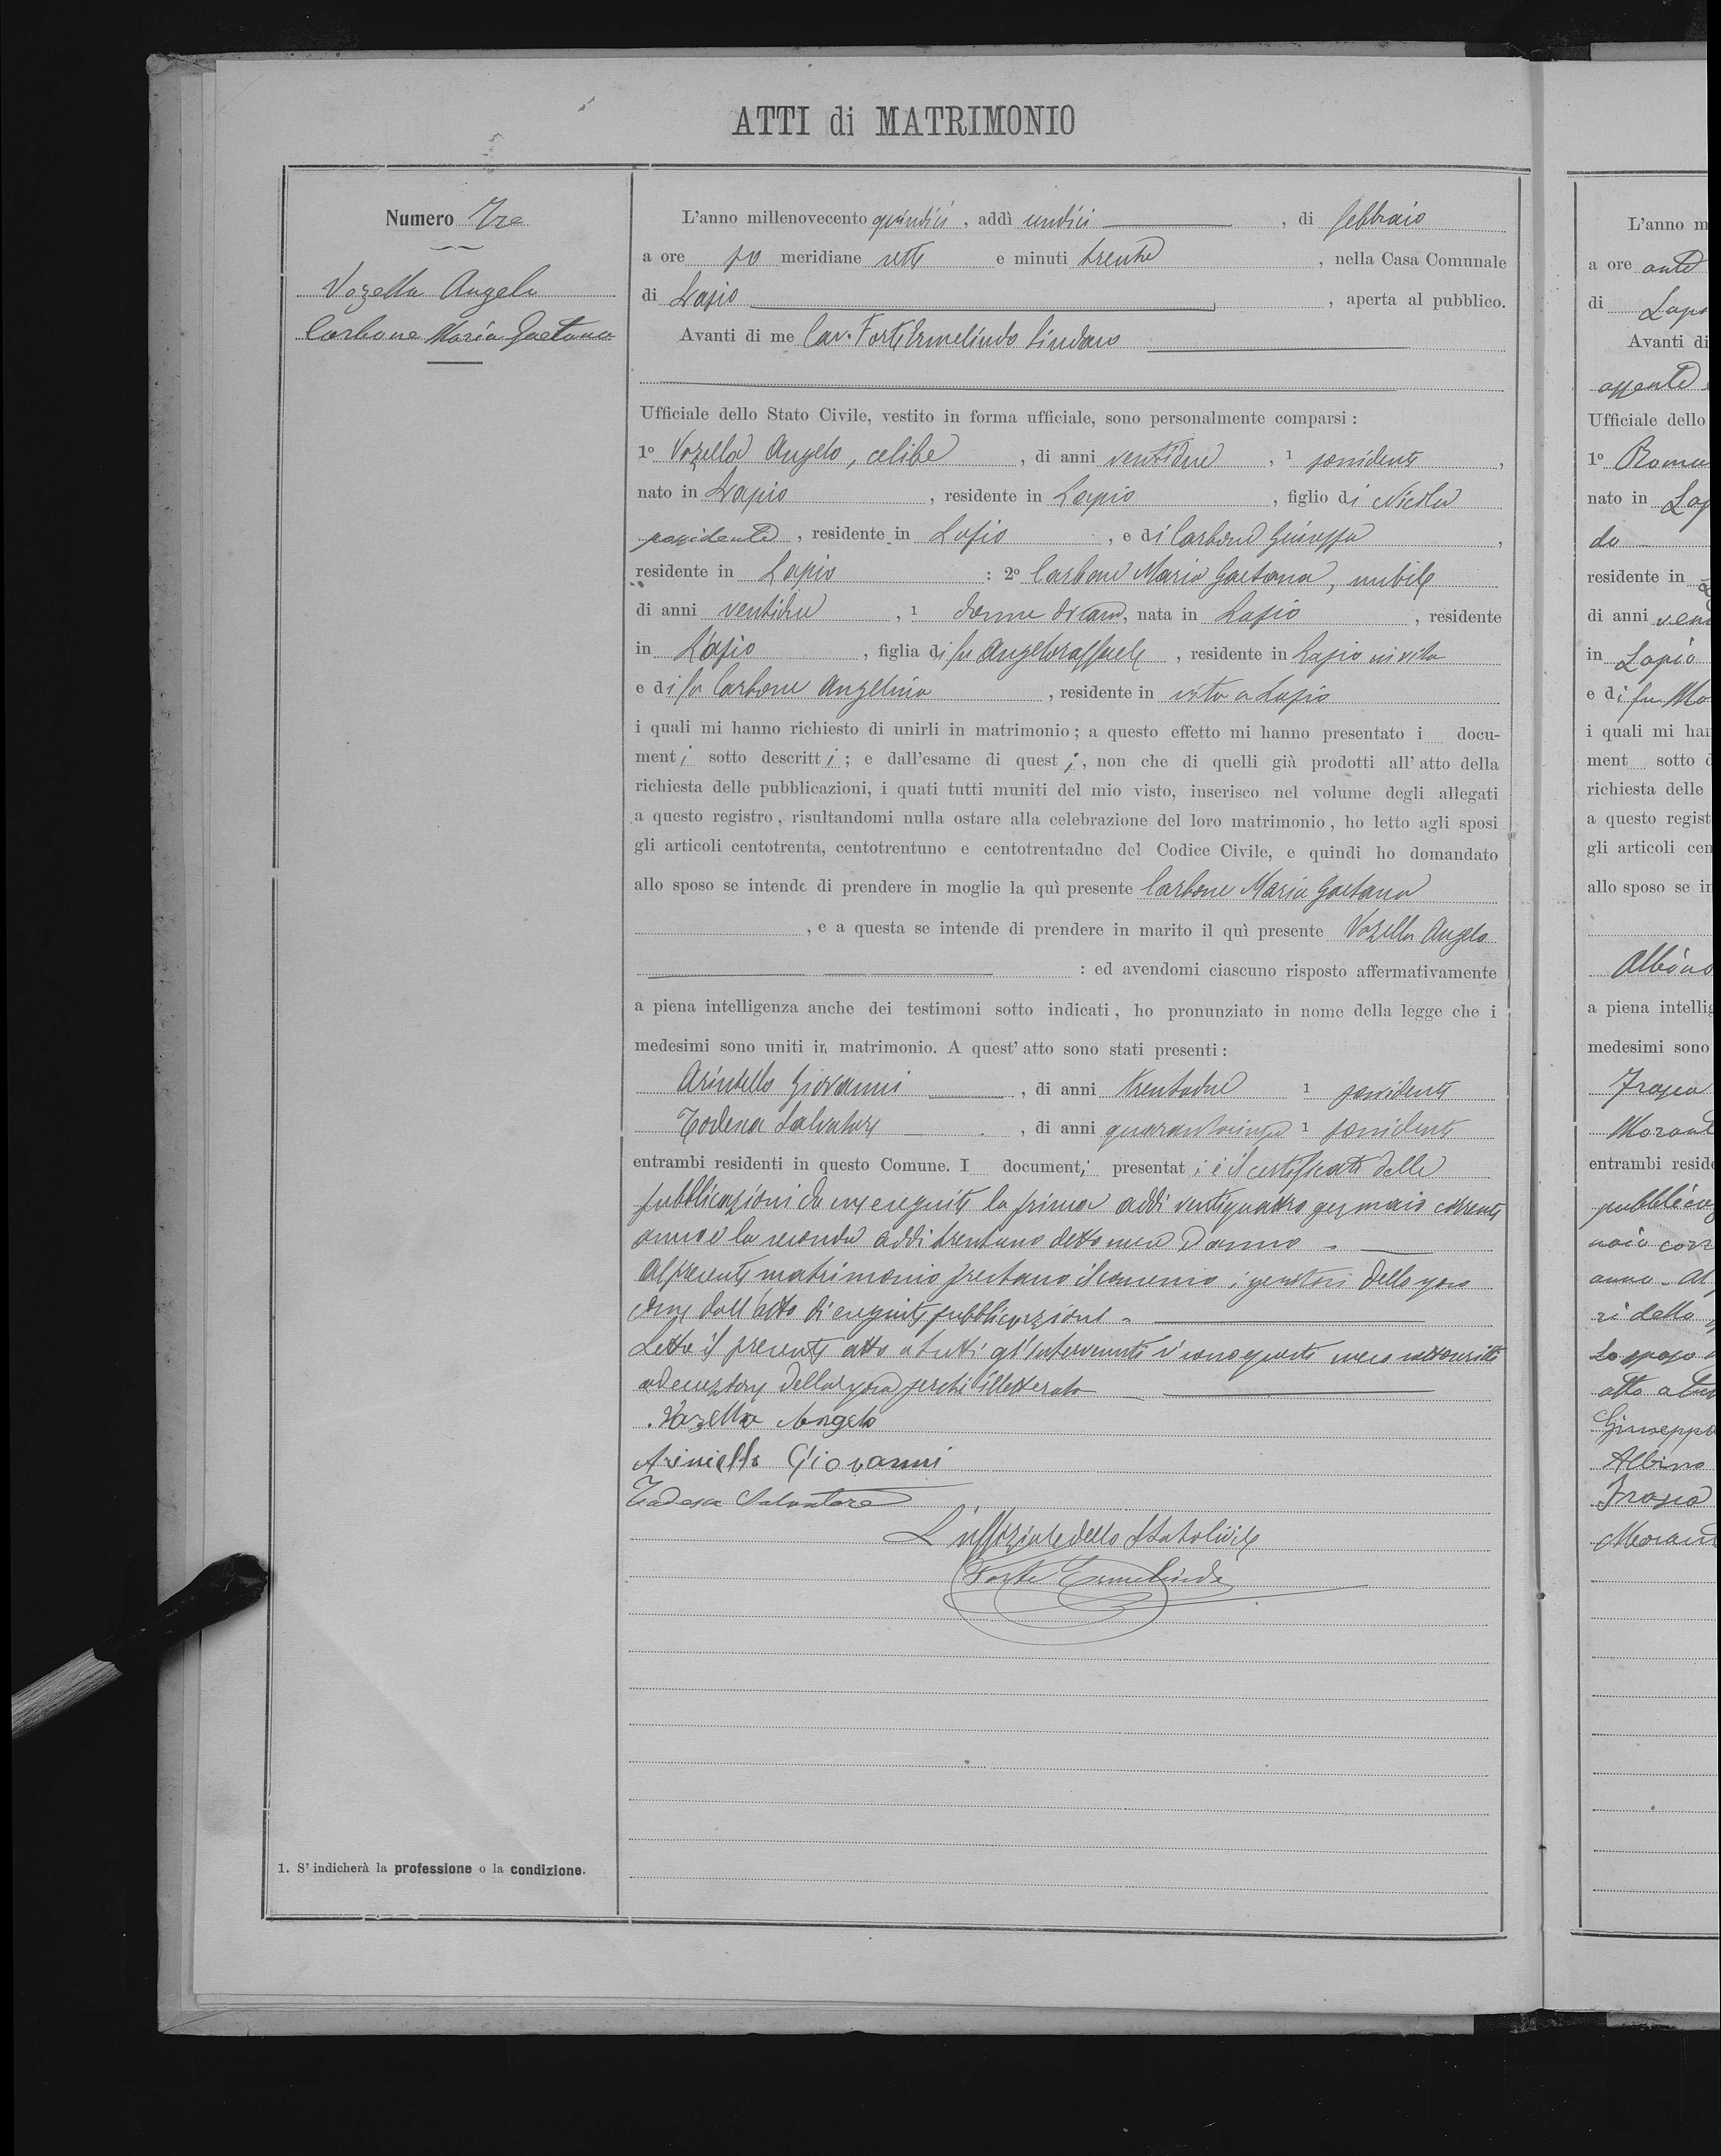 ATTI di MATRIMONIO
Numero Tre
Vozella Angelo
Carbone Maria Gaetana
L'anno millenovecento quindici, addì undici, di febbraio
a ore po meridiane sette e minuti trenta, nella Casa Comunale
di Lapio, aperta al pubblico.
Avanti di me Cav. Forte Ermelindo Sindaco
Ufficiale dello Stato Civile, vestito in forma ufficiale, sono personalmente comparsi:
1º Vozella Angelo, celibe, di anni ventidue, 1 possidente,
nato in Lapio, residente in Lapio, figlio di Nicola
possidente, residente in Lapio, e di Carbone Giuseppa,
residente in Lapio: 2º Carbone Maria Gaetana, nubile
di anni ventidue, 1 donna di casa, nata in Lapio, residente
in Lapio, figlia di fu Angeloraffaele, residente in Lapio in vita
e di fu Carbone Angelina, residente in vita a Lapio
i quali mi hanno richiesto di unirli in matrimonio; a questo effetto mi hanno presentato i docu-
menti sotto descritti; e dall'esame di questi, non che di quelli già prodotti all'atto della
richiesta delle pubblicazioni, i quati tutti muniti del mio visto, inserisco nel volume degli allegati
a questo registro, risultandomi nulla ostare alla celebrazione del loro matrimonio, ho letto agli sposi
gli articoli centotrenta, centotrentuno e centotrentadue del Codice Civile, e quindi ho domandato
allo sposo se intende di prendere in moglie la quì presente Carbone Maria Gaetana
, e a questa se intende di prendere in marito il quì presente Vozella Angelo
: ed avendomi ciascuno risposto affermativamente
a piena intelligenza anche dei testimoni sotto indicati, ho pronunziato in nome della legge che i
medesimi sono uniti in matrimonio. A quest'atto sono stati presenti:
Ariniello Giovanni, di anni trentadue 1 possidente
Todesca Salvatore, di anni quarantacinque 1 possidente
entrambi residenti in questo Comune. I documenti presentati è il certificato delle
pubblicazioni da me eseguite la prima addì ventiquattro gennaio corrente
anno e la seconda addì trentuno detto mese d'anno
Al presente matrimonio prestano il consenso i genitori dello sposo
come dall'atto di eseguite pubblicazioni
Letto il presente atto a tutti gl'intervenuti si sono questi meco sottoscritti
ad eccezione della sposa perchè illetterata
Vozella Angelo
Ariniello Giovanni
Todesca Salvatore
L'uffiziale dello Stato Civile
Forte Ermelindo
1. S'indicherà la professione o la condizione.
L'anno m
a ore ante
di Lapi
Avanti di
Ufficiale dello
1º Roma
nato in Lap
do
residente in
di anni ven
in Lapio
e di fu Ma
i quali mi han
ment sotto d
richiesta delle
a questo regist
gli articoli cen
allo sposo se in
Albino
a piena intellig
medesimi sono
Morand
entrambi reside
pubblicaz
naio corr
anno. Al
ri dello
Lo sposo
atto a tut
Giuseppe
Albino
Morand